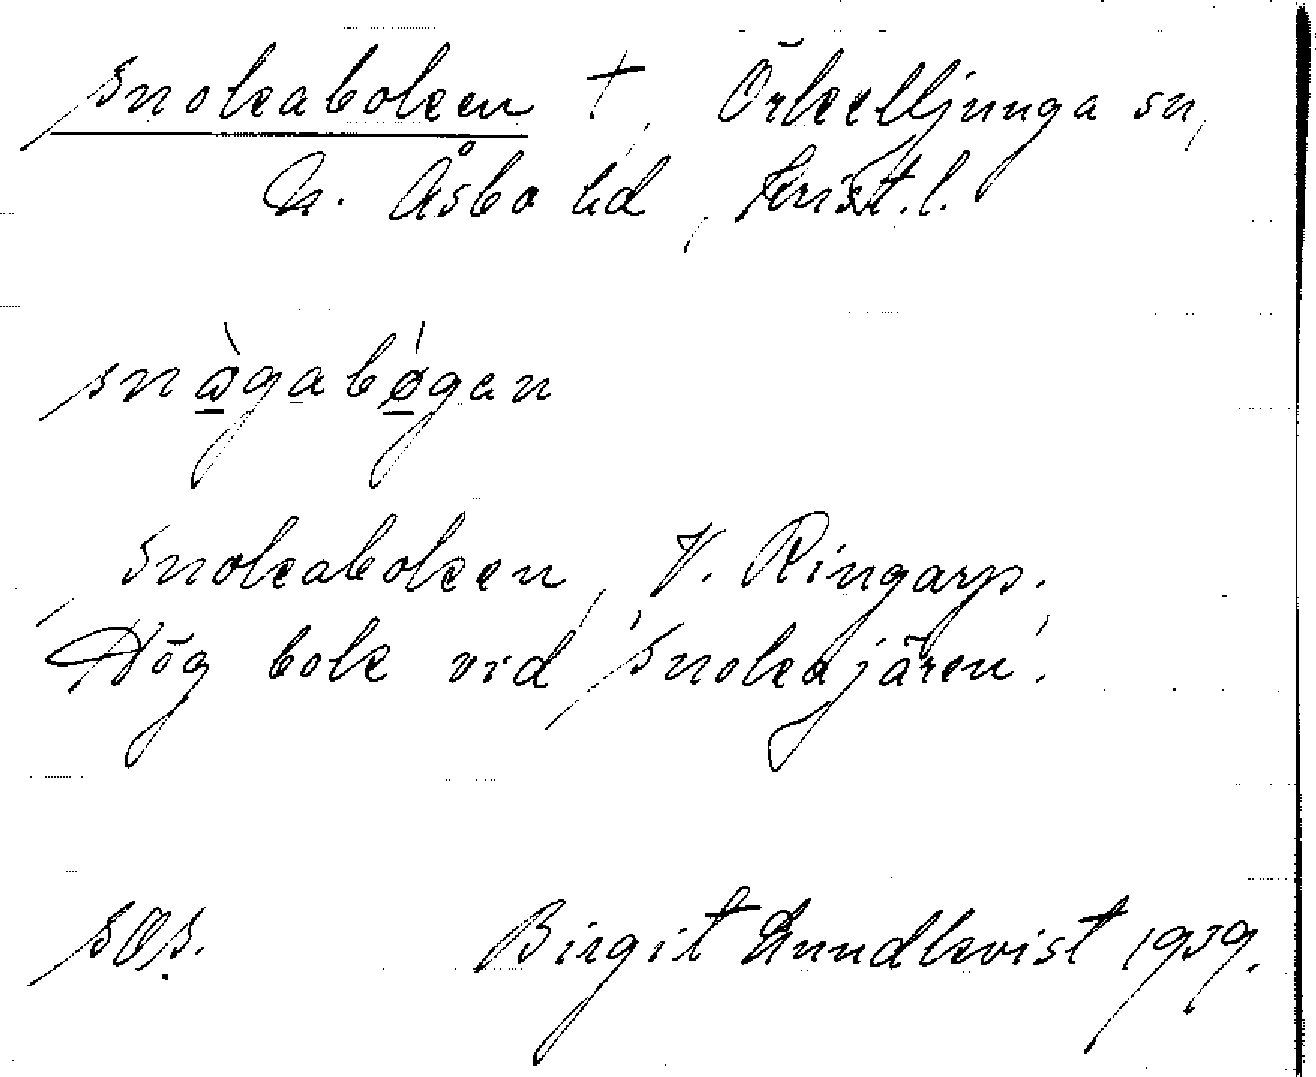 Snokaboken †, Örkelljunga sn,
N. Åsbo hd, Krist.l.
snø̀gabǿgen
Snokaboken, V. Ringarp.
Hög bok vid 'Snokajären'.
Birgit Lundkvist 1939.